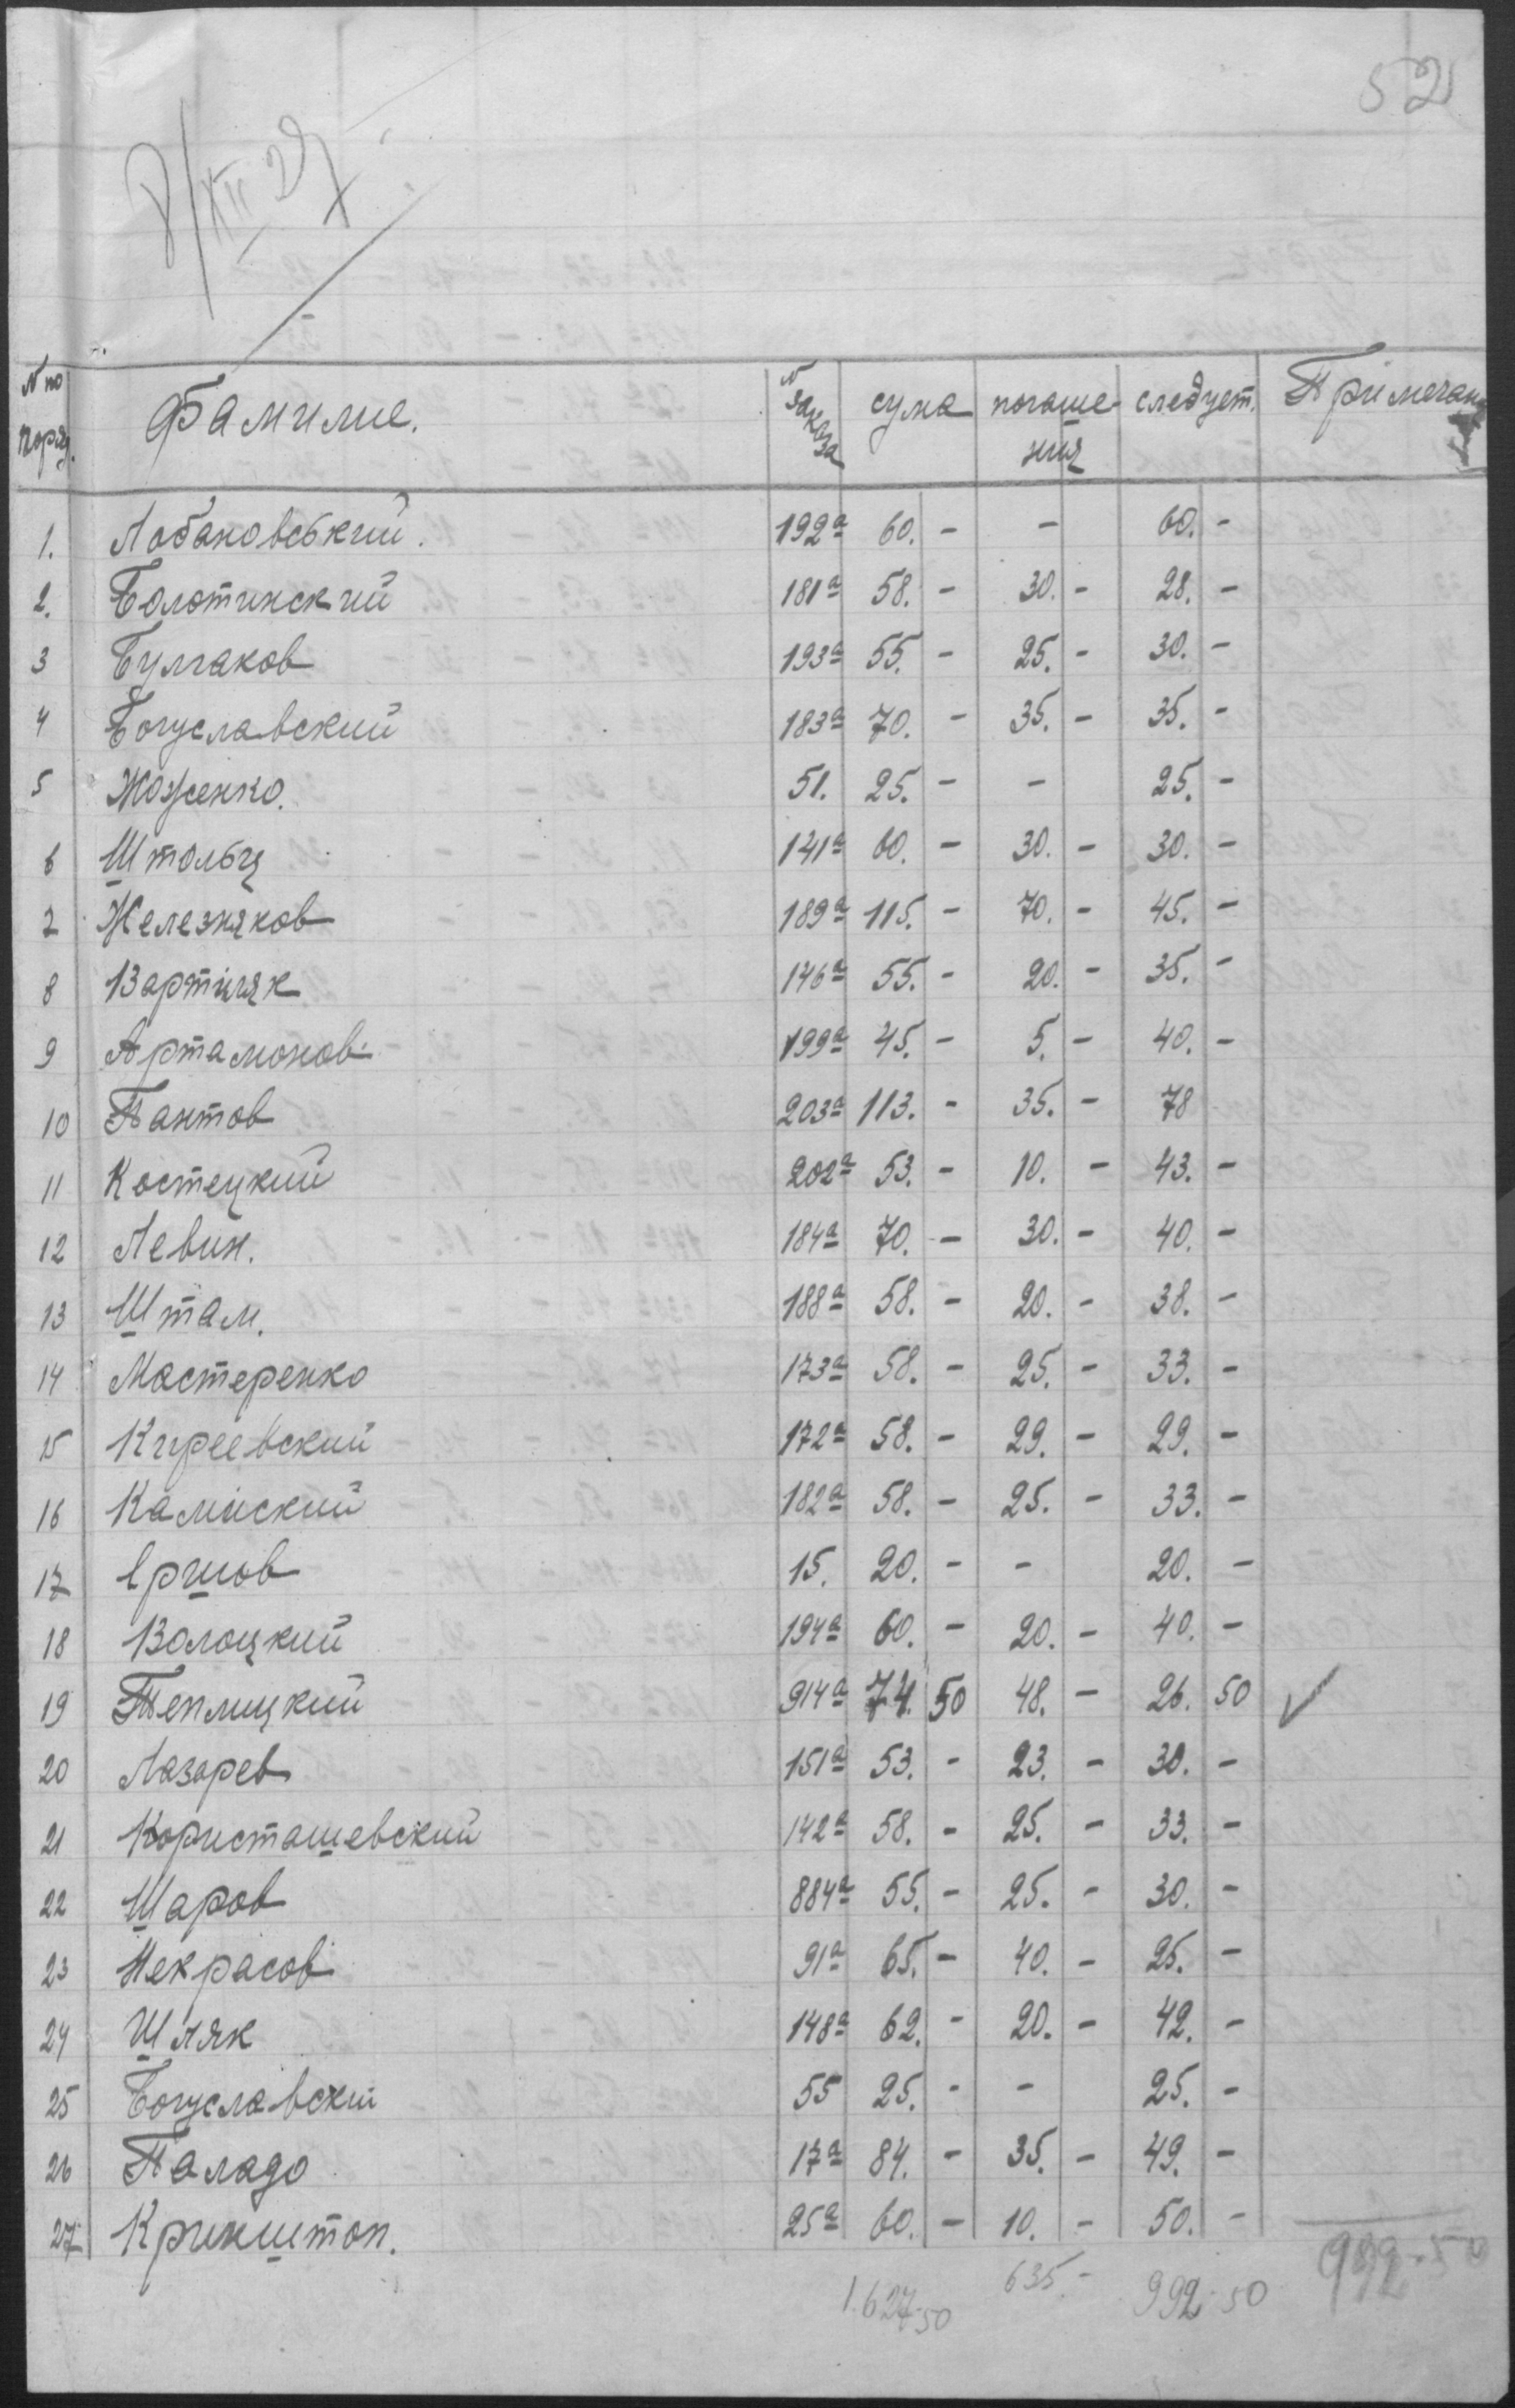 52
8/XII 27
N по поряд. Фамилие. N заказа сума погашения следует. Примечан
1. Лобановський. 192а 60. - - 60. -
2. Болотинский 181а 58. - 30. - 28. -
3 Булгаков 193а 55. - 25. - 30. -
4 Богуславский 183а 70. - 35. - 35. -
5 Жоженко. 51. 25. - - 25. -
6 Штольц 141а 60. - 30. - 30. -
7 Железняков 189а 115. - 70. - 45. -
8 Вартиняк 146а 55. - 20. - 35. -
9 Артамонов 199а 45. - 5. - 40. -
10 Пантов 203а 113. - 35. - 78
11 Костецкий 202а 53. - 10. - 43. -
12 Левин. 184а 70. - 30. - 40. -
13 Штам. 188а 58. - 20. - 38. -
14 Мастеренко 173а 58. - 25. - 33. -
15 Киреевский 172а 58. - 29. - 29. -
16 Камінский 182а 58. - 25. - 33. -
17 Єршов 15. 20. - - 20. -
18 Волоцкий 194а 60. - 20. - 40. -
19 Теплицкий 914а 74. 50 48. - 26. 50
20 Лазарев 151а 53. - 23. - 30. -
21 Користашевский 142а 58. - 25. - 33. -
22 Шаров 884а 55. - 25. - 30. -
23 Некрасов 91а 65. - 40. - 25. -
24 Шляк 148а 62. - 20. - 42. -
25 Богуславский 55 25. - - 25. -
26 Паладо 17а 84. - 35. - 49. -
27 Крикштоп. 25а 60. - 10. - 50. -
1.627-50 635.- 992-50 992-50